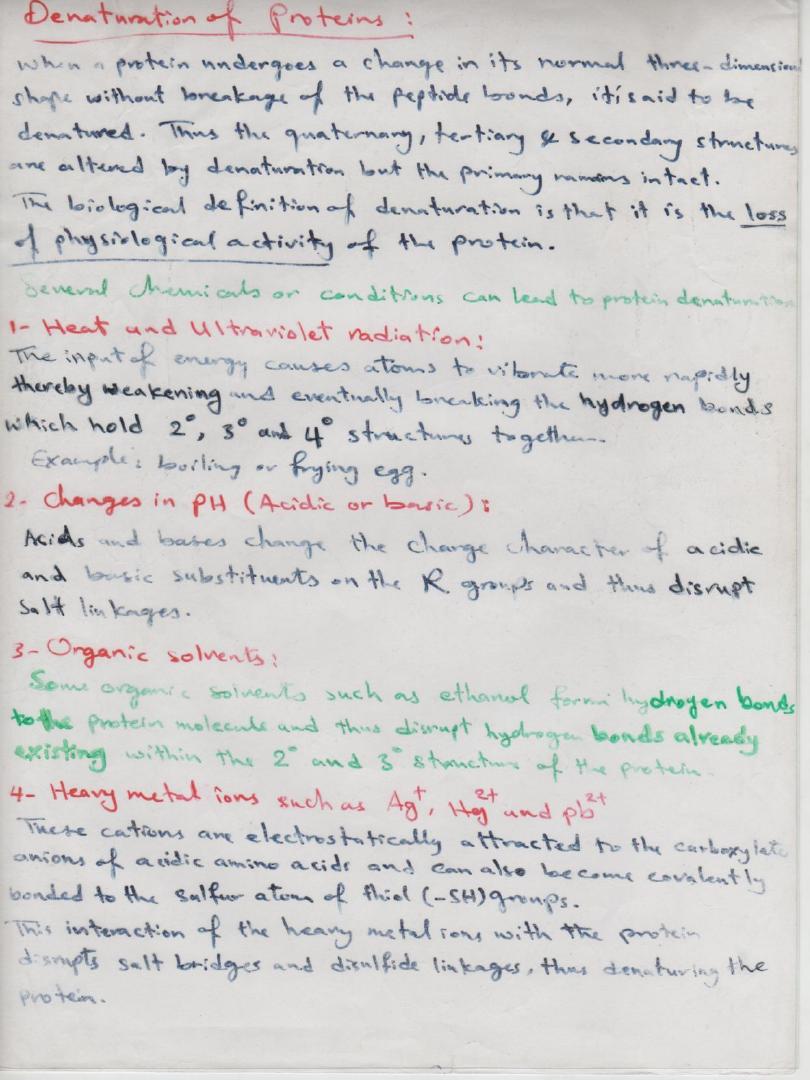 Denaturation of Proteins :
When a protein undergoes a change in its normal three-dimension
shape without breakage of the peptide bonds, it is said to be
denatured. Thus the quaternary, tertiary & secondary structures
are altered by denaturation but the primary remains intact.
The biological definition of denaturation is that it is the loss
of physiological activity of the protein.
Several chemicals or conditions can lead to protein denaturation
1- Heat and Ultraviolet radiation:
The input of energy causes atoms to vibrate more rapidly
thereby weakening and eventually breaking the hydrogen bonds
which hold 2°, 3° and 4° structures together.
Example: boiling or frying egg.
2- Changes in PH (Acidic or basic):
Acids and bases change the charge character of acidic
and basic substituents on the R groups and thus disrupt
Salt linkages.
3- Organic solvents:
Some organic solvents such as ethanol form hydrogen bonds
to the protein molecule and thus disrupt hydrogen bonds already
existing within the 2° and 3° structure of the protein.
4- Heavy metal ions such as Ag⁺, Hg²⁺ and pb²⁺
These cations are electrostatically attracted to the carboxylate
anions of acidic amino acids and can also become covalently
bonded to the sulfur atom of thiol (-SH) groups.
This interaction of the heavy metal ions with the protein
disrupts salt bridges and disulfide linkages, thus denaturing the
protein.